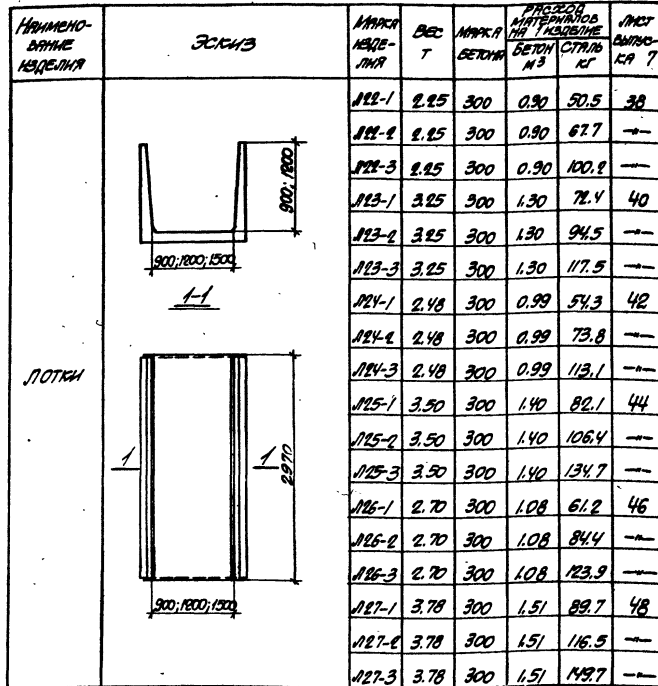 Наименование изделия
Эскиз
Марка изделия
Вес т
Марка бетона
Расход материалов на 1 изделие
Бетон м3
Сталь кг
Лист выпуска 7
Лотки
900; 1200
900; 1200; 1500
1-1
1 1
2970
900; 1200; 1500
Л22-1 2.25 300 0.90 50.5 38
Л22-2 2.25 300 0.90 67.7 —"—
Л22-3 2.25 300 0.90 100.2 —"—
Л23-1 3.25 300 1.30 72.4 40
Л23-2 3.25 300 1.30 94.5 —"—
Л23-3 3.25 300 1.30 117.5 —"—
Л24-1 2.48 300 0.99 54.3 42
Л24-2 2.48 300 0.99 73.8 —"—
Л24-3 2.48 300 0.99 113.1 —"—
Л25-1 3.50 300 1.40 82.1 44
Л25-2 3.50 300 1.40 106.4 —"—
Л25-3 3.50 300 1.40 134.7 —"—
Л26-1 2.70 300 1.08 61.2 46
Л26-2 2.70 300 1.08 84.4 —"—
Л26-3 2.70 300 1.08 123.9 —"—
Л27-1 3.78 300 1.51 89.7 48
Л27-2 3.78 300 1.51 116.5 —"—
Л27-3 3.78 300 1.51 149.7 —"—